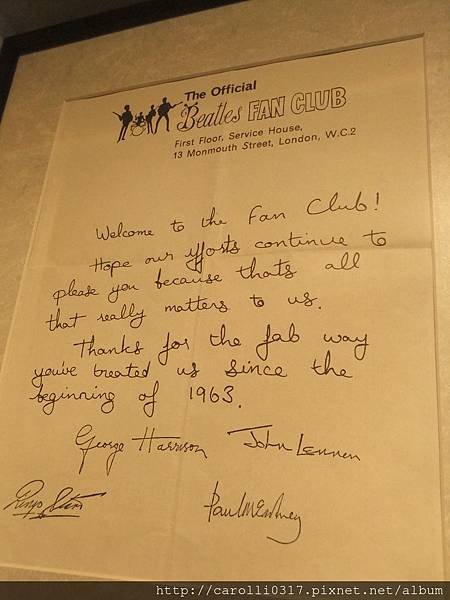 The Official
Beatles FAN CLUB
First Floor, Service House,
13 Monmouth Street, London, W.C.2
Welcome to the Fan Club!
Hope our efforts continue to
please you because thats all
that really matters to us.
Thanks for the fab way
you've treated us since the
beginning of 1963.
George Harrison John Lennon
Ringo Starr
Paul McCartney
http://carolli0317.pixnet.net/album